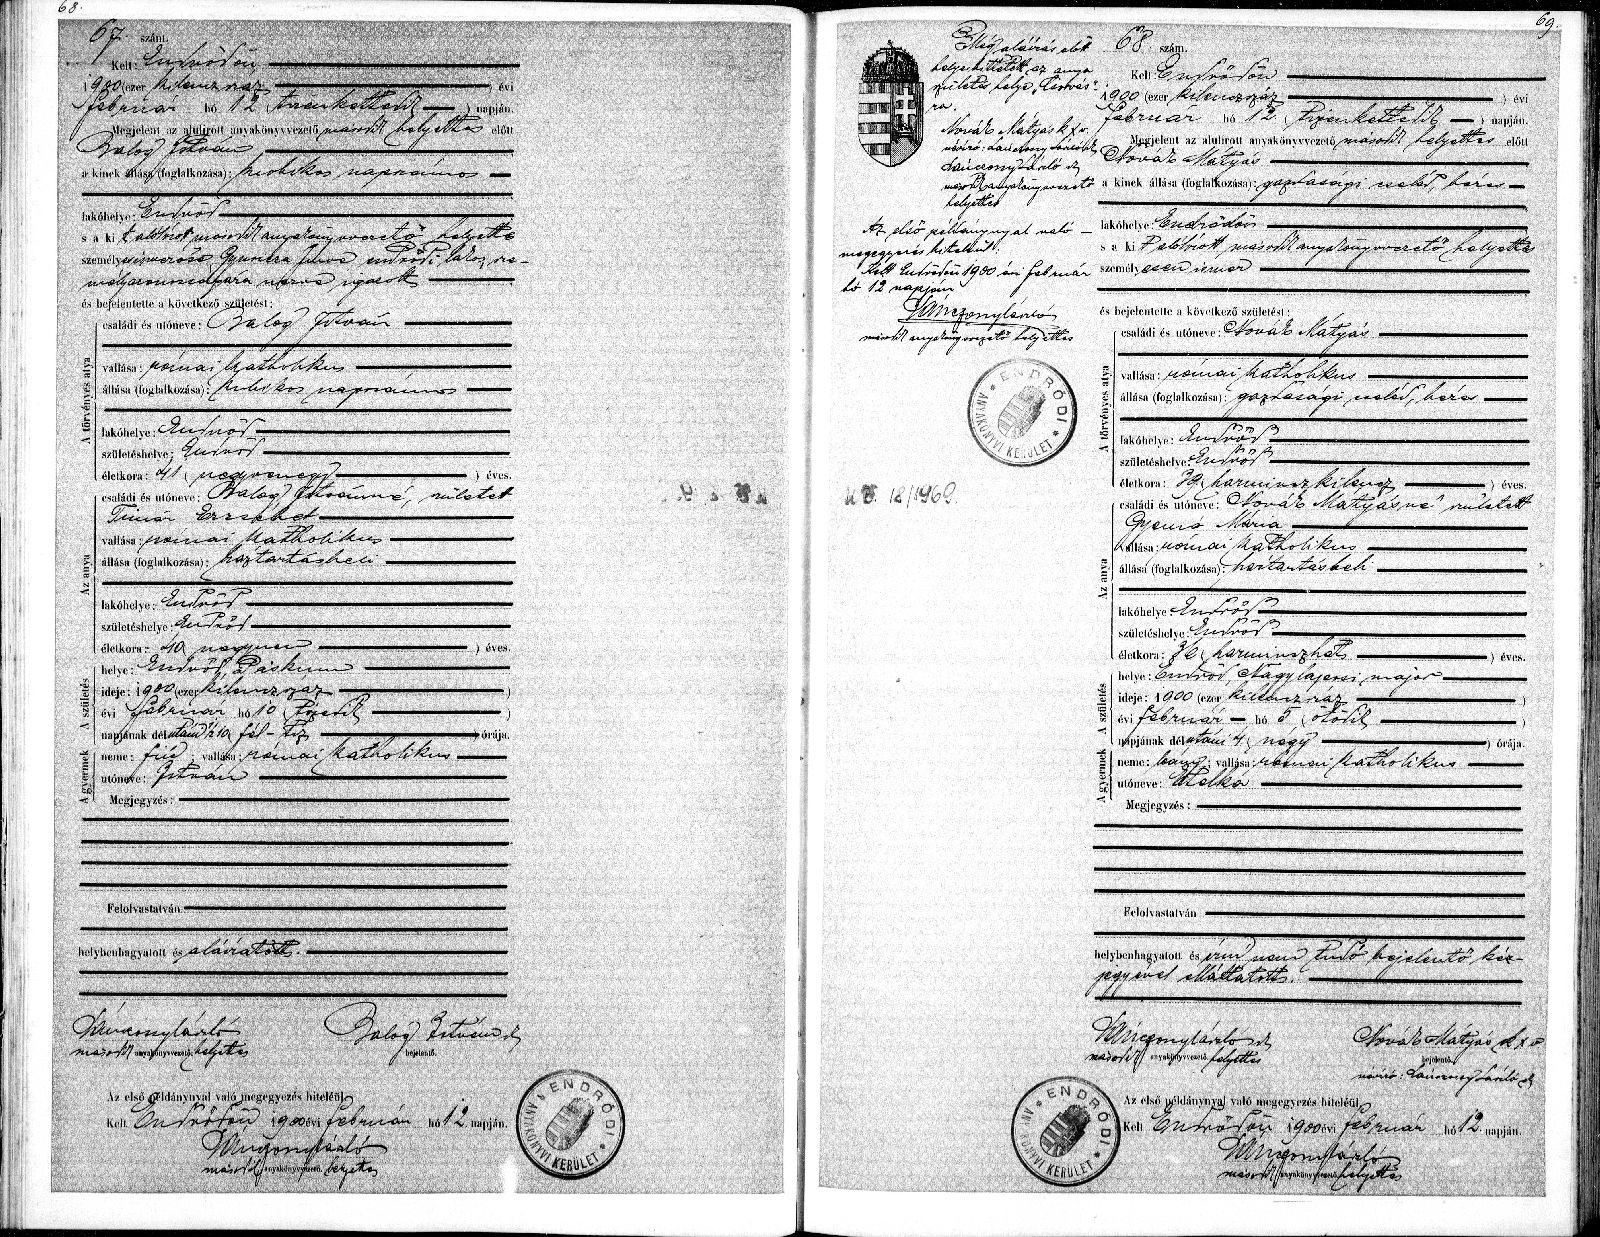 68.
67. szám.
Kelt: Endrődön
1900 (ezer kilenczszáz ) évi
február hó 12 (tizenkettedik ) napján.
Megjelent az alulirott anyakönyvvezető második helyettes előtt
Balog István
a kinek állása (foglalkozása): piolokos napszámos
lakóhelye: Endrőd
s a kit alólirott második anyakönyvvezető helyettes
személyes ismerőse Gyuricza Julis endrődi lakos,
igazolt
és bejelentette a következő születést:
A törvényes atya
családi és utóneve: Balog István
vallása: római katholikus
állása (foglalkozása): napszámos
lakóhelye: Endrőd
születéshelye: Endrőd
életkora: 41 (negyvenegy ) éves.
Az anya
családi és utóneve: Balog Istvánné, született
Timár Erzsébet
vallása: római katholikus
állása (foglalkozása): háztartásbeli
lakóhelye: Endrőd
születéshelye: Endrőd
életkora: 40 (negyven ) éves.
A születés
helye: Endrőd, Páskum
ideje: 1900 (ezer kilenczszáz )
évi február hó 10 (tizedik )
napjának délutáni ½10 (fél-tíz ) órája.
A gyermek
neme: fiú; vallása: római katholikus
utóneve: István
Megjegyzés:
Felolvastatván
helybenhagyatott és aláiratott.
Lánczonyi László
második anyakönyvvezető helyettes
Balog István
bejelentő.
Az első példánynyal való megegyezés hiteléül
Kelt Endrődön 1900 évi február hó 12 napján.
Lánczonyi László
második anyakönyvvezető helyettes
ENDRŐDI * ANYAKÖNYVI KERÜLET *
69.
Még aláirás előtt
helyesbittetett, az anya
születés helye „Csorvás"
ra.
Novák Mátyás k x v.
névíró: Lánczonyi László
Lánczonyi László
második anyakönyvvezető
helyettes
Az első példánynyal való
megegyezés hiteléül.
Kelt Endrődön 1900 évi február
hó 12 napján
Lánczonyi László
második anyakönyvvezető helyettes
ENDRŐDI * ANYAKÖNYVI KERÜLET *
18/1969.
68. szám.
Kelt Endrődön
1900 (ezer kilenczszáz ) évi
február hó 12. (tizenkettedik ) napján.
Megjelent az alulirott anyakönyvvezető második helyettes előtt
Novák Mátyás
a kinek állása (foglalkozása): gazdasági cseléd, béres
lakóhelye: Endrődön
s a kit alólirott második anyakönyvvezető helyettes
személyesen ismer
és bejelentette a következő születést:
A törvényes atya
családi és utóneve: Novák Mátyás
vallása: római katholikus
állása (foglalkozása): gazdasági cseléd, béres
lakóhelye: Endrőd
születéshelye: Endrőd
életkora: 39 (harminczkilencz ) éves.
Az anya
családi és utóneve: Novák Mátyásné született
Gyuró Mária
vallása: római katholikus
állása (foglalkozása): háztartásbeli
lakóhelye: Endrőd
születéshelye: Endrőd
életkora: 36 (harminczhat ) éves.
A születés
helye: Endrőd, Nagylaposi major
ideje: 1900 (ezer kilenczszáz )
évi február hó 5 (ötödik )
napjának délutáni 4 (négy ) órája.
A gyermek
neme: leány; vallása: római katholikus
utóneve: Etelka
Megjegyzés:
Felolvastatván
helybenhagyatott és irni nem tudó bejelentő kéz-
jegyével elláttatott.
Lánczonyi László
második anyakönyvvezető helyettes
Novák Mátyás k x v
bejelentő.
névíró: Lánczonyi László
Az első példánynyal való megegyezés hiteléül
Kelt Endrődön 1900 évi február hó 12. napján.
Lánczonyi László
második anyakönyvvezető helyettes
ENDRŐDI * ANYAKÖNYVI KERÜLET *